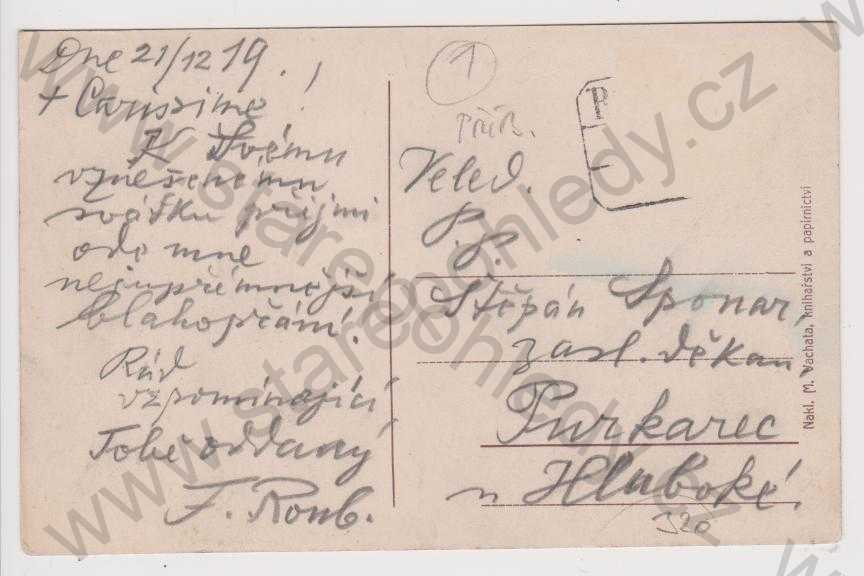 Dne 21/12 19.!
+ Carissime!
K Svému
vznešenému
svátku přijmi
ode mne
nejupřímnější
blahopřání!
Rád
vzpomínající
Tobě oddaný
F. Roub.
1
Veled.
P.
P.
Štěpán Sponar,
zasl. děkan,
Purkarec
u Hluboké.
320
Nakl. M. Vachata, knihařství a papírnictví
www.stareopohledy.cz